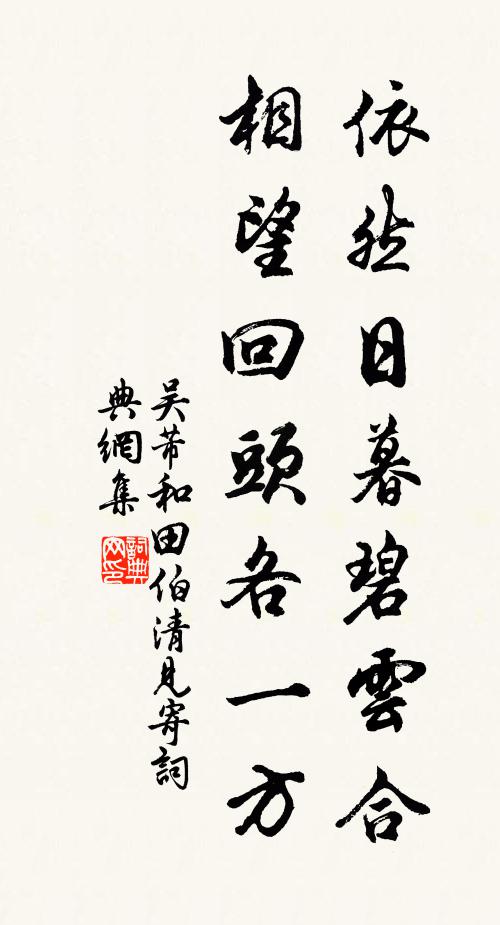 依然日暮碧雲合
相望回頭各一方
吳芾和田伯清見寄詞
典網集
詞典网印